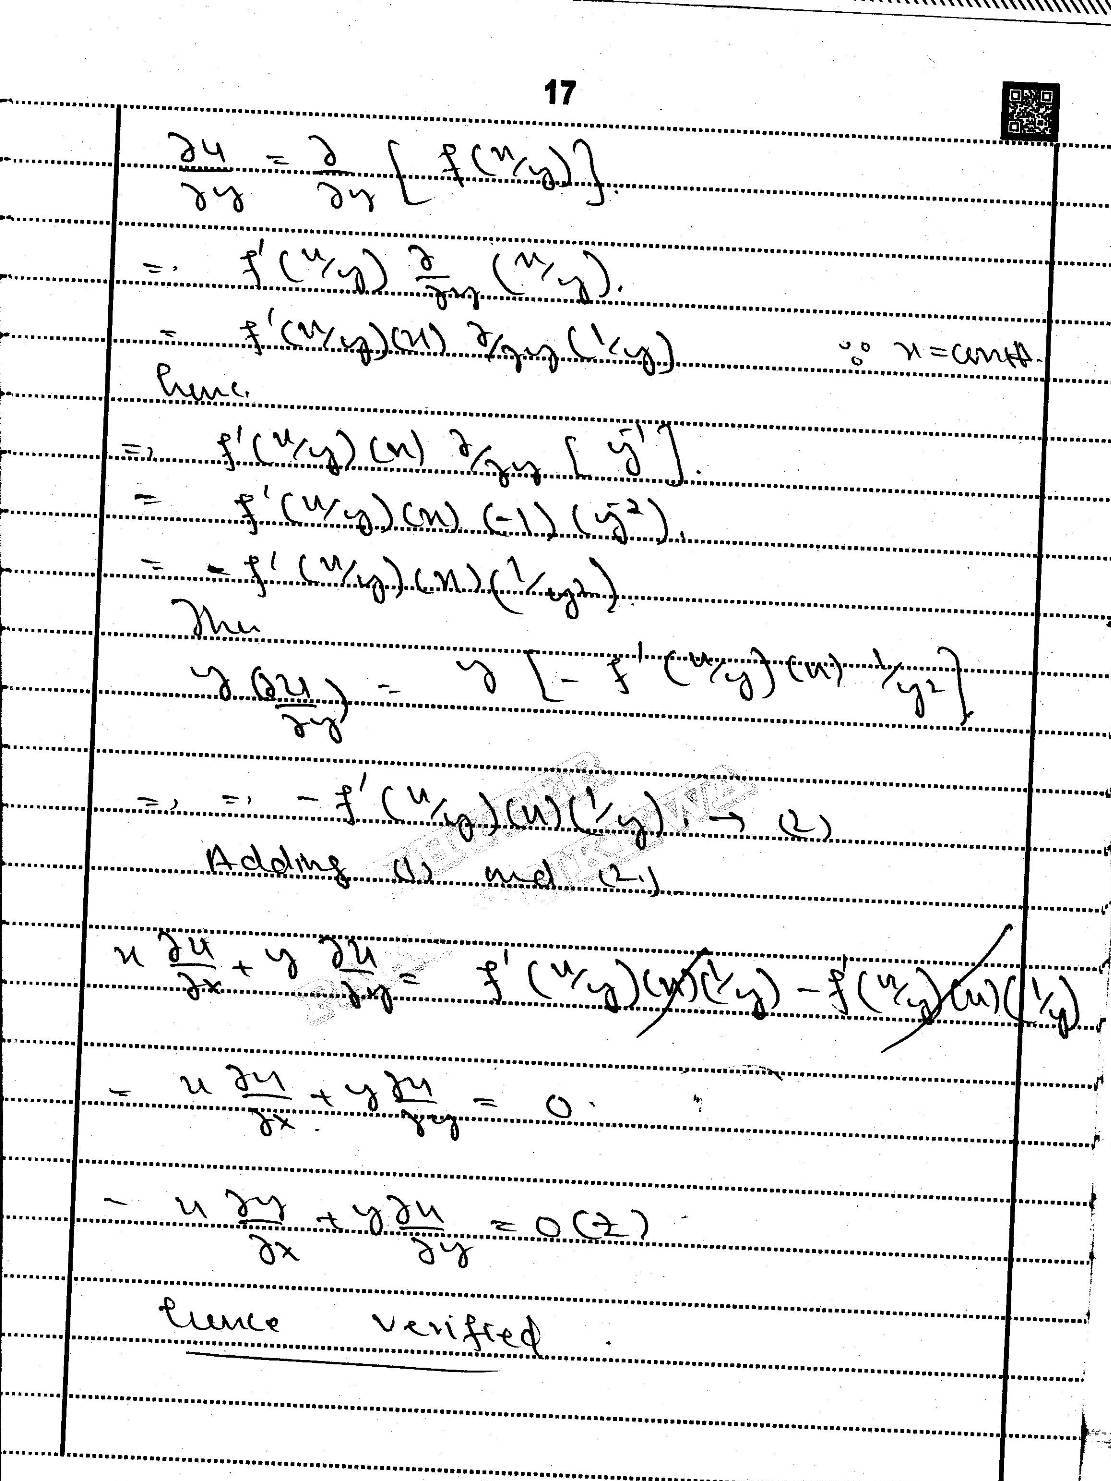 17
∂u/∂y = ∂/∂y [ f(x/y) ].
=. f'(x/y) ∂/∂y (x/y).
= f'(x/y)(x) ∂/∂y (1/y) ∵ x = const.
henc.
=, f'(x/y)(x) ∂/∂y [ y⁻¹ ].
= f'(x/y)(x) (-1) (y⁻²).
= - f'(x/y)(x)(1/y²).
Then
y (∂u/∂y) = y [ - f'(x/y)(x) 1/y² ]
=, =, - f'(x/y)(x)(1/y). → (2)
Adding (1) and (2).
x ∂u/∂x + y ∂u/∂y = f'(x/y)(x)(1/y) - f'(x/y)(x)(1/y)
= x ∂u/∂x + y ∂u/∂y = 0.
- x ∂y/∂x + y ∂u/∂y = 0(z)
hence verified.